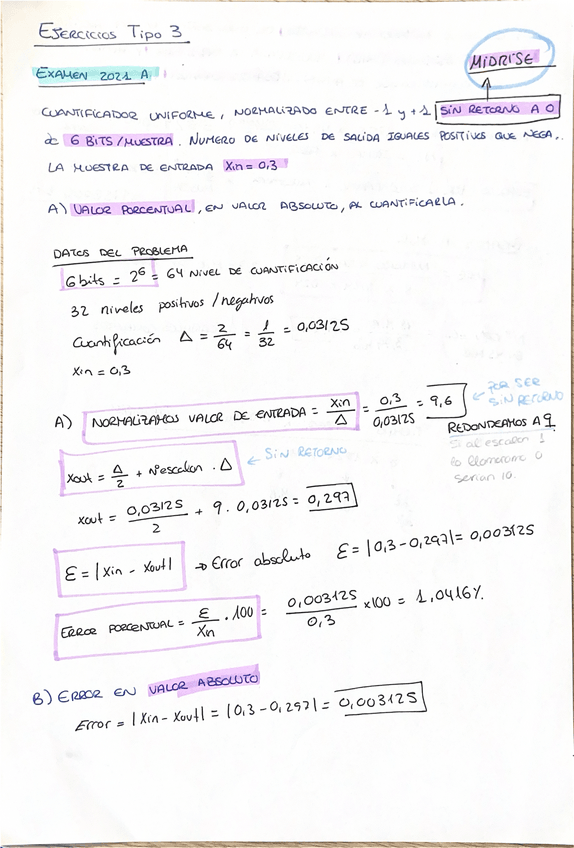 EJERCICIOS TIPO 3
MIDRISE
EXAMEN 2021 A
CUANTIFICADOR UNIFORME, NORMALIZADO ENTRE -1 y +1 SIN RETORNO A 0
de 6 BITS/MUESTRA. NUMERO DE NIVELES DE SALIDA IGUALES POSITIVOS QUE NEGA..
LA MUESTRA DE ENTRADA Xin = 0,3
A) VALOR PORCENTUAL, EN VALOR ABSOLUTO, AL CUANTIFICARLA.
DATOS DEL PROBLEMA
6 bits = 2⁶ = 64 NIVEL DE CUANTIFICACIÓN
32 niveles positivos / negativos
Cuantificación Δ = 2/64 = 1/32 = 0,03125
Xin = 0,3
A) NORMALIZAMOS VALOR DE ENTRADA = Xin/Δ = 0,3/0,03125 = 9,6 ← POR SER SIN RETORNO
REDONDEAMOS A 9
Si al escalon 1
lo llamaramos 0
serian 10.
Xout = Δ/2 + nºescalon . Δ ← SIN RETORNO
Xout = 0,03125/2 + 9 . 0,03125 = 0,297
Ɛ = |Xin - Xout| → Error absoluto Ɛ = |0,3 - 0,297| = 0,003125
ERROR PORCENTUAL = Ɛ/Xin . 100 = 0,003125/0,3 x100 = 1,0416%
B) ERROR EN VALOR ABSOLUTO
Error = |Xin - Xout| = |0,3 - 0,297| = 0,003125